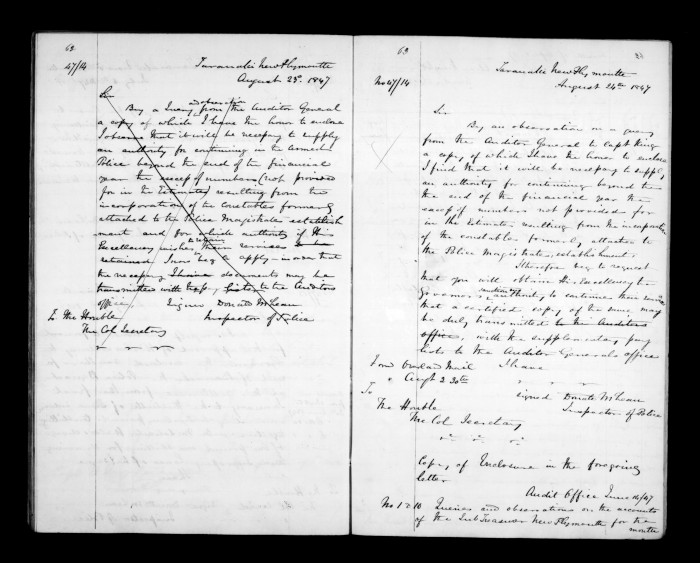 62
47/14
Taranaki New Plymouth
August 23rd 1847
Sir
observation
By a Query from the Auditor General
a copy of which I have the honor to enclose
I observe that it will be necessary to supply
an authority for continuing in the Armed
Police beyond the end of the financial
year the excess of numbers (not provided
for in the Estimates) resulting from the
incorporation of the Constables formerly
attached to the Police Magistrate establish
ment and for which authority if His
Excellency wishes their services to be
retained I now beg to apply in order that
the necessary documents may be
transmitted with to the Auditors
office Signed Donald McLean
To The Honble Inspector of Police
The Col Secretary
63
No 47/14
Taranaki New Plymouth
August 24th 1847
Sir
By an observation on a query
from the Auditor General to Capt King
a copy of which I have the honor to enclose
I find that it will be necessary to supply
an authority for continuing beyond the
the end of the financial year the
excess of numbers not provided for
in the Estimates resulting from the incorporation
of the constables formerly attached to
the Police Magistrates establishment.
I therefore beg to request
that you will obtain His Excellency the
Governors sanction & authority to continue their services
that a certified copy of the same may
be duly transmitted to the Auditors
office, with the supplementary pay
lists to the Auditor Generals office
Forwd Overland Mail I have
Augt 30th
Signed Donald McLean
To Inspector of Police
The Honble
The Col Secretary
Copy of Enclosure in the foregoing
letter
Audit Office June 14/47
No 1 to 10 Queries and observations on the accounts
of the Sub Treasurer New Plymouth for the
month